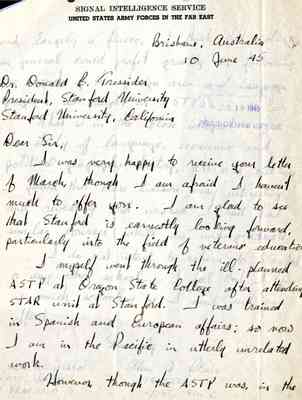 SIGNAL INTELLIGENCE SERVICE
UNITED STATES ARMY FORCES IN THE FAR EAST
Brisbane, Australia
10 June 45
Dr. Donald B. Tressider
President, Stanford University
Stanford University, California
Dear Sir,
I was very happy to receive your letter
of March, though I am afraid I haven't
much to offer you. I am glad to see
that Stanford is earnestly looking forward,
particularly into the field of veterans education
I myself went through the ill-planned
ASTP at Oregon State College after attending
STAR unit at Stanford. I was trained
in Spanish and European affairs; so now
I am in the Pacific in utterly unrelated
work.
However though the ASTP was, in the